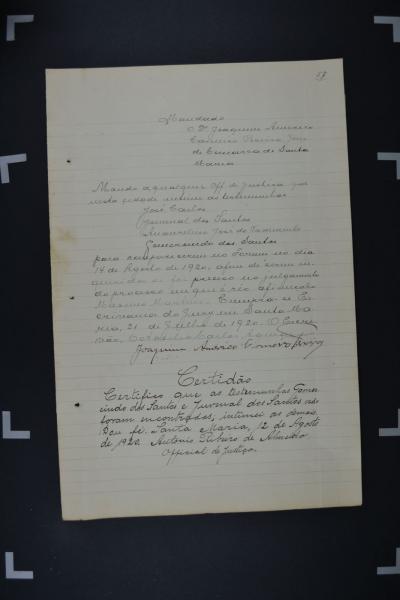 Mandado
O Dr. Joaquim Americo
Juiz
de Comarca de Santa
Maria
Mando a qualquer Off. de Justiça que
nesta cidade intime as testemunhas
José Carlos
Juvenal dos Santos
José do Nascimento
Gomercindo dos Santos
para comparecerem no Forum no dia
14 de Agosto de 1920, afim de serem in-
no julgamento
do processo em que é réo
Maximo Martins. Cumpra-se. Es-
crivania do Jury em Santa Ma-
ria, 21 de Julho de 1920. O Escri-
vão,
Joaquim Americo
Certidão
Certifico que as testemunhas Gome-
cindo dos Santos e Juvenal dos Santos não
foram encontradas, intimei as demais.
Dou fé. Santa Maria, 12 de Agosto
de 1920. Antonio Ribeiro de
Official de Justiça.